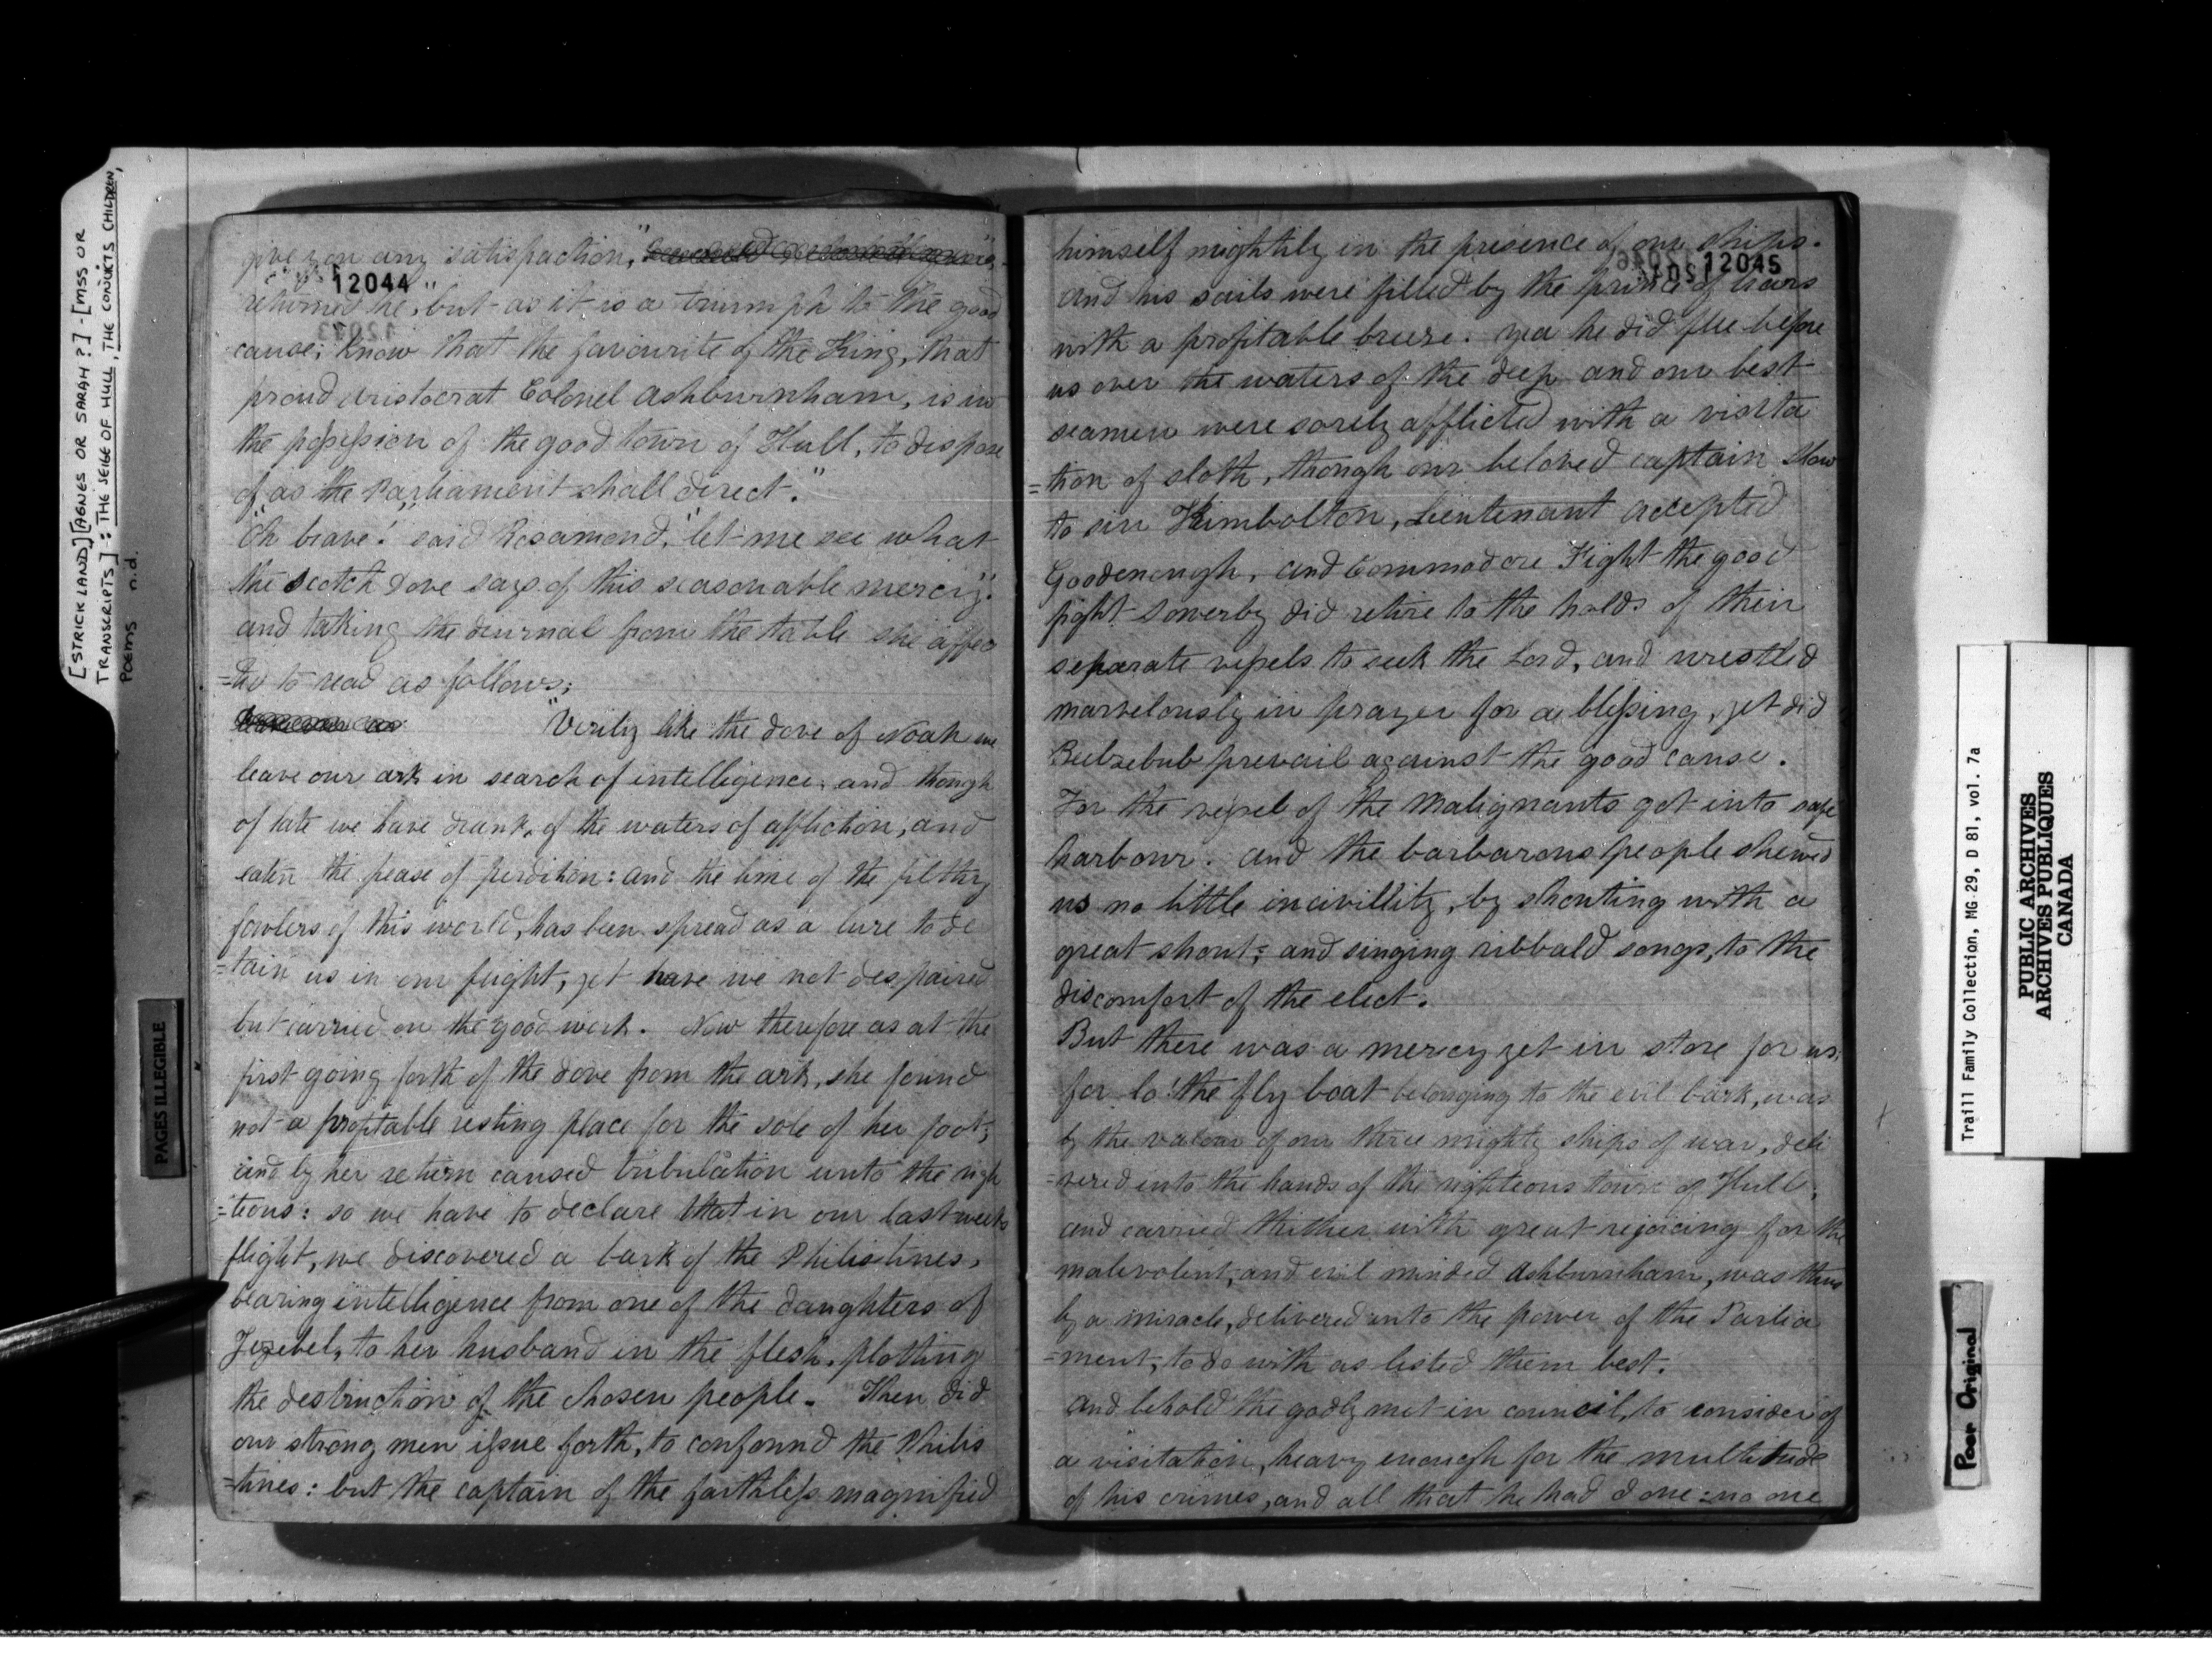 [STRICKLAND] [AGNES OR SARAH?] - [MSS OR
TRANSCRIPTS]: THE SEIGE OF HULL, THE CONVICTS CHILDREN,
POEMS n.d.
give you any satisfaction,"
12044
returned he, "but as it is a triumph to the good
cause; know that the favourite of the King, that
proud aristocrat Colonel Ashburnham, is in
the possession of the good town of Hull, to dispose
of as the Parliament shall direct."
"Oh brave!" said Rosamond, "let me see what
the Scotch Dove says of this seasonable mercy":
and taking the diurnal from the table she affec
=ted to read as follows;
"Verily like the dove of Noah we
leave our ark in search of intelligence, and though
of late we have drank, of the waters of affliction, and
eaten the pease of perdition: and the lime of the filthy
fowlers of this world, has been spread as a lure to de
=tain us in our flight, yet have we not despaired
but carried on the good work. Now therefore as at the
first going forth of the dove from the ark, she found
not a profitable resting place for the sole of her foot;
and by her return caused tribulation unto the righ
=teous: so we have to declare that in our last weeks
flight, we discovered a bark of the Philistines,
bearing intelligence from one of the daughters of
Jezebel, to her husband in the flesh, plotting
the destruction of the chosen people. Then did
our strong men issue forth, to confound the Philis
=tines: but the captain of the faithless magnified
himself mightily in the presence of our ships.
12045
and his sails were filled by the prince of liars
with a profitable breeze. yea he did flee before
us over the waters of the deep and our best
seamen were sorely afflicted with a visita
=tion of sloth, though our beloved captain Slow
to sin Kimbolton, Lieutenant Accepted
Goodenough, and Commodore Fight the good
fight Sowerby did retire to the holds of their
separate vessels to seek the Lord, and wrestled
marvelously in prayer for a blessing, yet did
Beelzebub prevail against the good cause.
For the vessel of the Malignants got into safe
harbour. and the barbarous people shewed
us no little incivillity, by shouting with a
great shout; and singing ribbald songs, to the
discomfort of the elect.
But there was a mercy yet in store for us;
for lo! the fly boat belonging to the evil bark, was
by the valour of our three mighty ships of war, deli
=vered into the hands of the righteous town of Hull,
and carried thither with great rejoicing for the
malevolent, and evil minded Ashburnham, was thus
by a miracle, delivered unto the power of the Parlia
=ment, to do with as listed them best.
And behold the godly met in council, to consider of
a visitation, heavy enough for the multitude
of his crimes, and all that he had done: no one
PAGES ILLEGIBLE
Traill Family Collection, MG 29, D 81, vol. 7a
PUBLIC ARCHIVES
ARCHIVES PUBLIQUES
CANADA
Poor Original